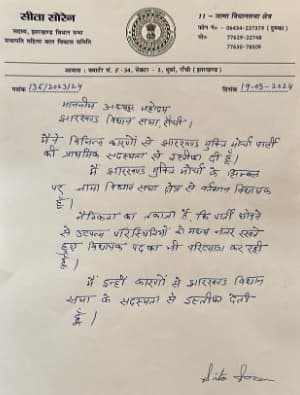 सीता सोरेन
सदस्य, झारखण्ड विधान सभा
सभापति महिला बाल विकास समिति
11 - जामा विधानसभा क्षेत्र
फोन नं० - 06434-227379 (दुमका)
77639-22748
77630-78509
आवास : क्वार्टर नं. F-34, सेक्टर - 3, धुर्वा, राँची (झारखण्ड)
पत्रांक 136/2023/24
दिनांक 19-03-2024
माननीय अध्यक्ष महोदय
झारखण्ड विधान सभा, राँची।
मैंने विभिन्न कारणों से झारखण्ड मुक्ति मोर्चा पार्टी
की प्राथमिक सदस्यता से इस्तीफा दी हूँ।
मैं झारखण्ड मुक्ति मोर्चा के सिम्बल
पर जामा विधान सभा क्षेत्र से वर्तमान विधायक
हूँ।
नैतिकता का तकाजा है, कि पार्टी छोड़ने
से उत्पन्न परिस्थितियों के मध्य नजर रखते
हुए विधायक पद का भी परित्याग कर रही
हूँ।
मैं इन्हीं कारणों से झारखण्ड विधान
सभा के सदस्यता से इस्तीफा देती
हूँ।
Sita Soren